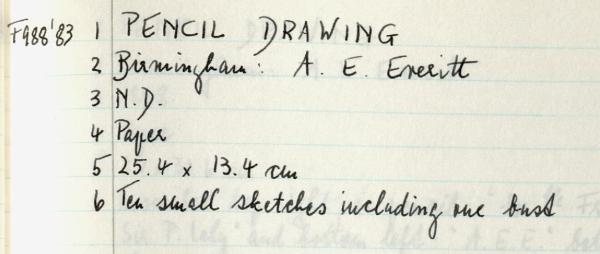 F988'83 1 PENCIL DRAWING
2 Birmingham: A. E. Everitt
3 N.D.
4 Paper
5 25.4 x 13.4 cm
6 Ten small sketches including one bust